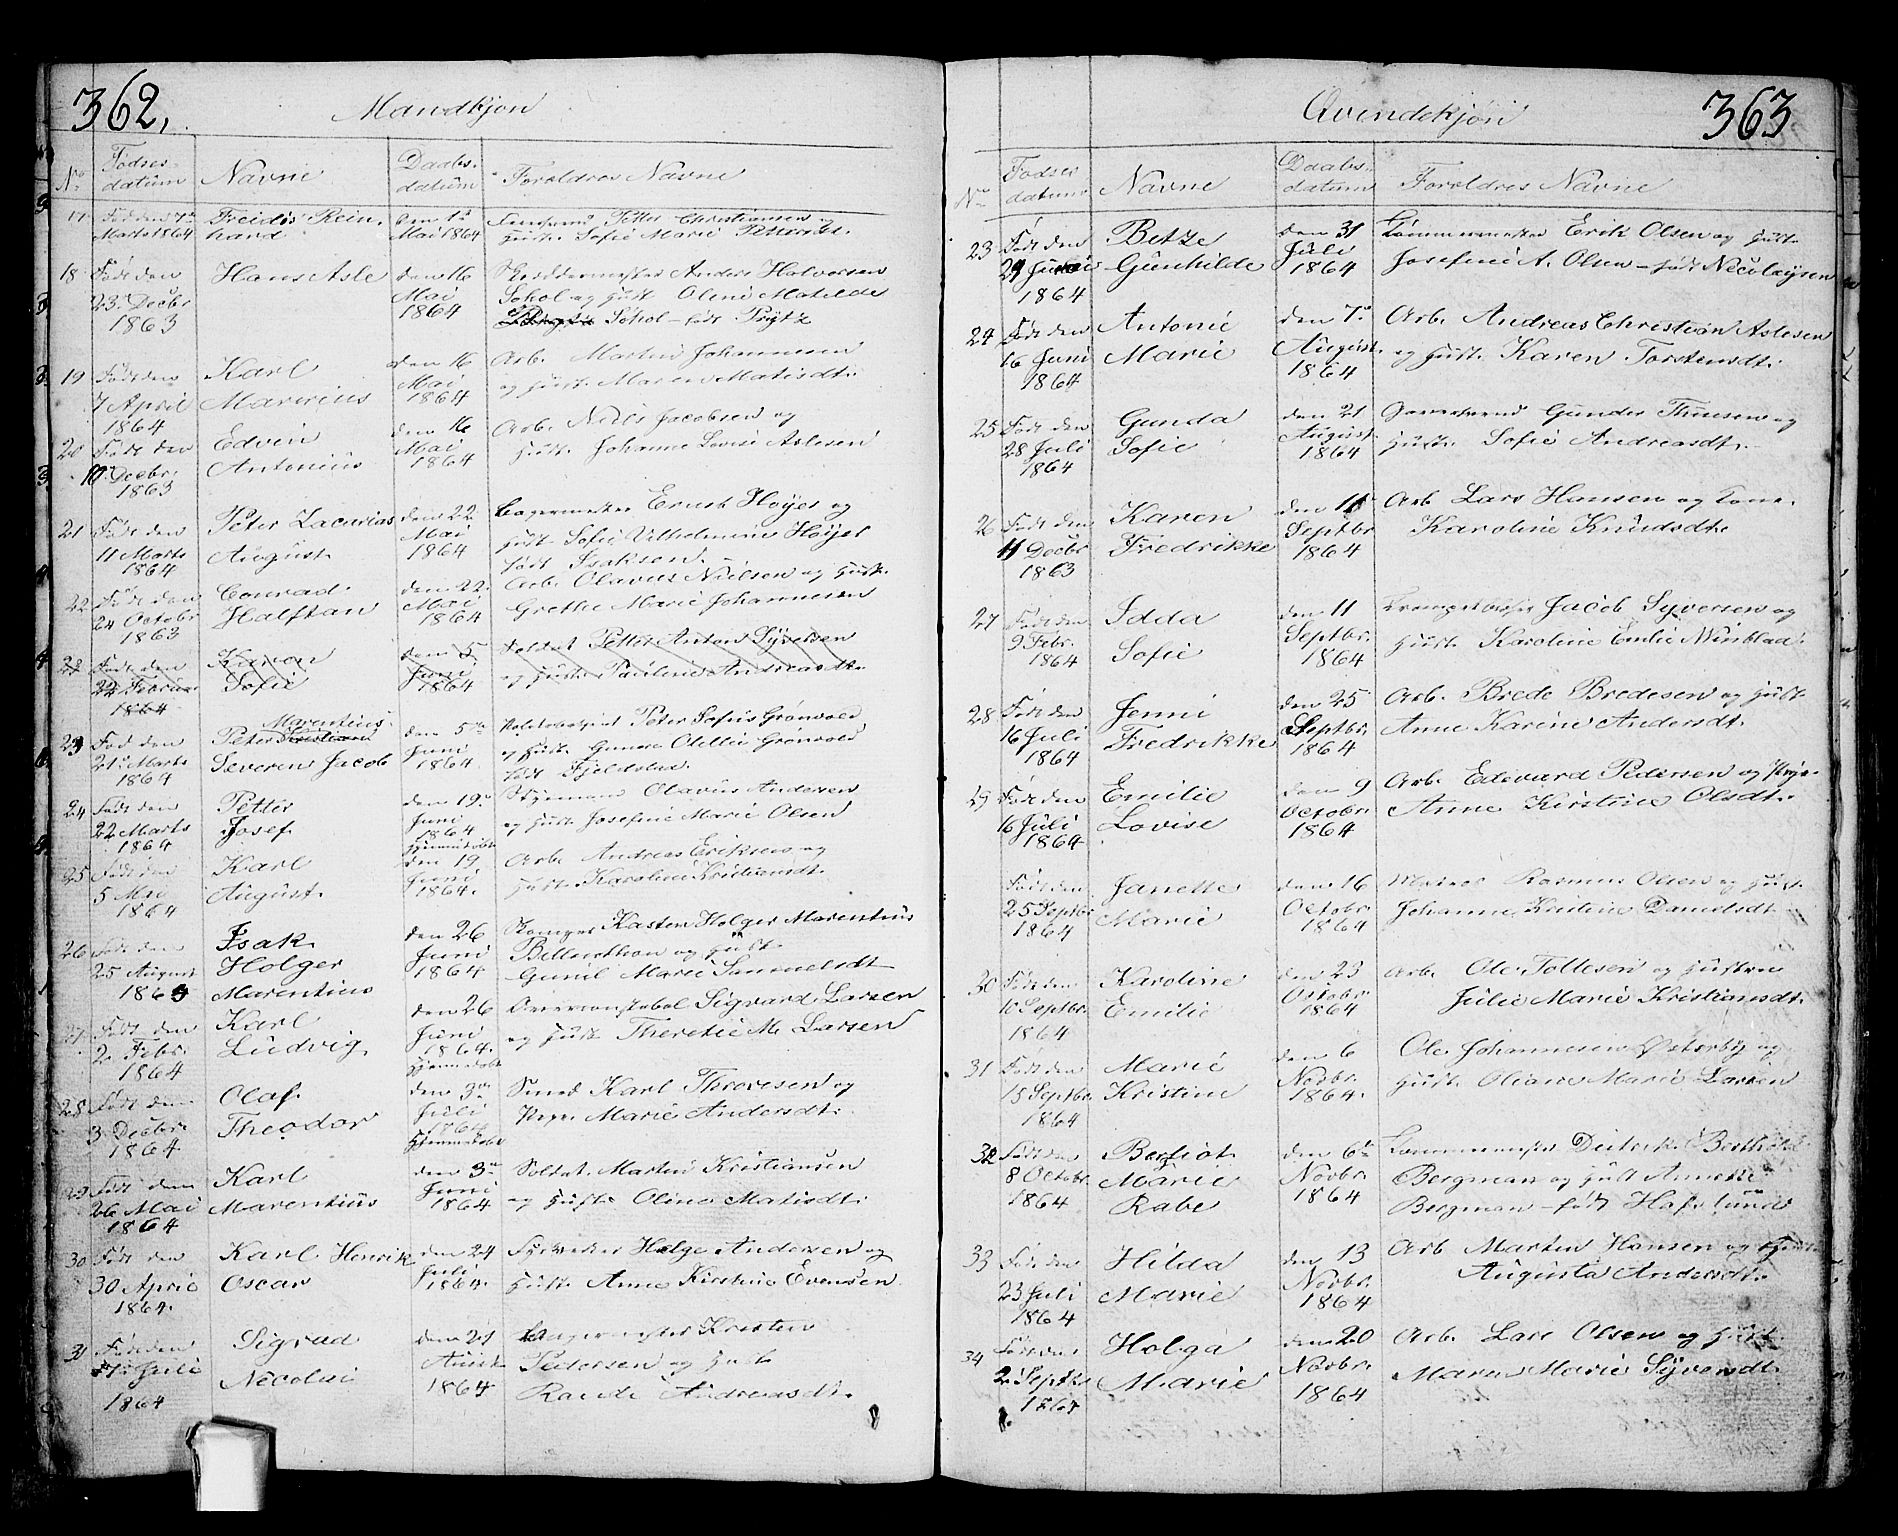 362,
Mandkjøn
No
Fødses-
datum
Navne
Daabs-
datum
Foreldres Navne
17
Marts 1864
hard
Den 1ste
Mai 1864
Petter Christiansen
Hust. Sofie Marie
18
Født den
23. Decbr
1863
Hans Asle
den 16
Mai
1864
Anders Halvorsen
Sohol og Hust Oline Matilde
Sohol - født Prytz
19
Født den
7 April
1864
Karl
Marinius
den 16
Mai
1864
Arb. Martin Johannesen
og Hust. Maren Matisdt.
20
Født den
10 Decbr.
1863
Edvin
Antonius
den 16
Mai
1864
Arb. Niels Jacobsen og
Hust. Johanne Lovise Aslesen
21
Født den
11 Marts
1864
Peter Zacarias
August
den 22
Mai
1864
Bagermester Ernst Høyer og
Hust. Sofie Vilhelmine Høyer
født Isaksen.
22
Født den
24 Octobr
1863
Conrad
Halftan
den 22
Mai
1864
Arb. Olavus Nielsen og Hust.
Grethe Marie Johannesen
Født den
22 Februar
1864
Karen
Sofie
den 5
Juni
1864
Soldat Petter Anton Syversen
og Hust. Pauline Andreasdt.
23
Født den
21de Marts
1864
Marentius
Peter Kristian
Severen Jacob
den 5te
Juni
1864
Peter Sofus Grønvold
og Hust. Gunda Otellie Grønvold
født Fjeldstad
24
Født den
22 Marts
1864
Petter
Josef
den 19de
Juni
1864
Hjemmedøbt
Styrmand Olavus Andersen
og Hust. Josefine Marie Olsen
25
Født den
5 Mai
1864
Karl
August
den 19
Juni
1864.
Arb. Andreas Eriksen og
Hust. Karoline Kristiansdt.
26
Født den
25 August
Isak
Holger
Marentius
den 26
Juni
1864
Karsten Holger Marentius
og Hust.
Gunil Marie Samuelsdt
27
Født den
2 Febr.
1864
Karl
Ludvig
den 26
Juni
1864.
Hjemmedøbt
Overconstabel Sigvard Larsen
og Hust. Theretie M. Larsen
28
Født den
3 Decbr.
1864
Olaf
Theodor
den 3die
Juli
1864
Hjemmedøbt
Smed Karl Thoresen og
Pige Marie Andersdt.
29
Født den
26 Mai
1864
Karl
Marentius
den 3die
Juni
1864
Soldat Martin Kristiansen
og Hust. Oline Matisdt.
30
Født den
30 April
1864.
Karl Henrik
Oscar
den 24
Juli
1864.
Helge Andersen og
Hust. Anne Kirstine Evensen
31
Født den
Juli
1864
Sigvad
Nicolai
den 21
August
1864
Bagermester Kristen
Petersen og Hust
Randi Andreasdt.
363
Qvindekjøn
No
Fødses
datum
Navne
Daabs-
datum
Foreldres Navne
23
Født den
29 Juni
1864
Betze
Gunhilde
den 31
Juli
1864
Tømmermester Erik Olsen og Hust.
Josefine A. Olsen - født Nicolaysen
24
Født den
16 Juni
1864
Antonie
Marie
den 7de
August
1864
Arb. Andreas Christian Aslesen
og Hust. Karen Torstensdt.
25
Født den
28 Juli
1864
Gunda
Sofie
den 21
August
1864
Gunder Thnesen og
Hust. Sofie Andreasdt.
26
Født den
11 Decbr
1863
Karen
Fredrikke
den 11
Septbr
1864
Arb. Lars Hansen og Kone
Karoline Knudsdt.
27
Født den
9 Febr.
1864
Idda
Sofie
den 11
Septbr.
1864
Trompetblæser Jacob Syversen og
Hust. Karoline Emilie Munblad.
28
Født den
16 Juli
1864
Jenni
Fredrikke
den 25
Septbr.
1864
Arb. Brede Bredesen og Hust.
Anne Karine Andersdt.
29
Født den
16 Juli
1864
Emilie
Lovise
den 9
Octobr
1864
Arb. Edevard Pedersen og Pige
Anne Kirstine Olsdt.
Født den
25 Septbr
1864
Janette
Marie
den 16
Octobr
1864
Matros Rasmus Olsen og Hust.
Johanne Kristine Danielsdt.
30
Født den
10 Septbr.
1864
Karoline
Emilie
den 23
Octobr.
1864
Arb. Ole Tollesen og Hustru
Julie Marie Kristiansdt.
31
Født den
15 Septbr.
1864
Marie
Kristine
den 6
Novbr.
1864.
Ole Johannesen Østerby og
Hust. Oliane Marie Larsen
32
Født den
8 Octobr.
1864
Marie
Rabe
den 6te
Novbr.
1864
Deitrik
Bergman og Hust Annette
Bergman - født Hafslund
33
Født den
23 Juli
1864
Hilda
Marie
den 13
Novbr.
1864
Arb Martin Hansen og Hust.
Augusta Andersdt.
34
Født den
2 Septbr
1864
Holga
Marie
den 20
Novbr.
1864
Arb. Lars Olsen og Hust.
Maren Marie Syversdt.